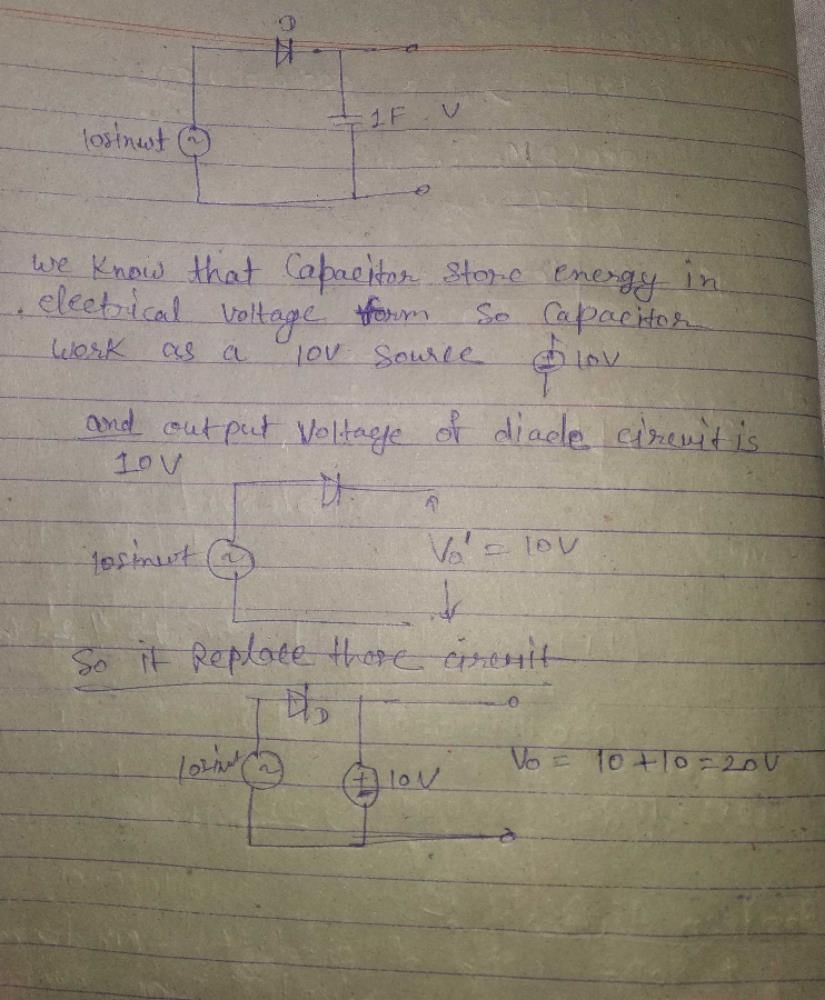 D
10sinwt
1F V
We Know that Capacitor Store energy in
electrical voltage form So Capacitor
work as a 10V Source 10V
and output Voltage of diode circuit is
10V
10sinwt
Vo' = 10V
So it Replace there circuit
D
10sinwt
10V
Vo = 10+10=20V